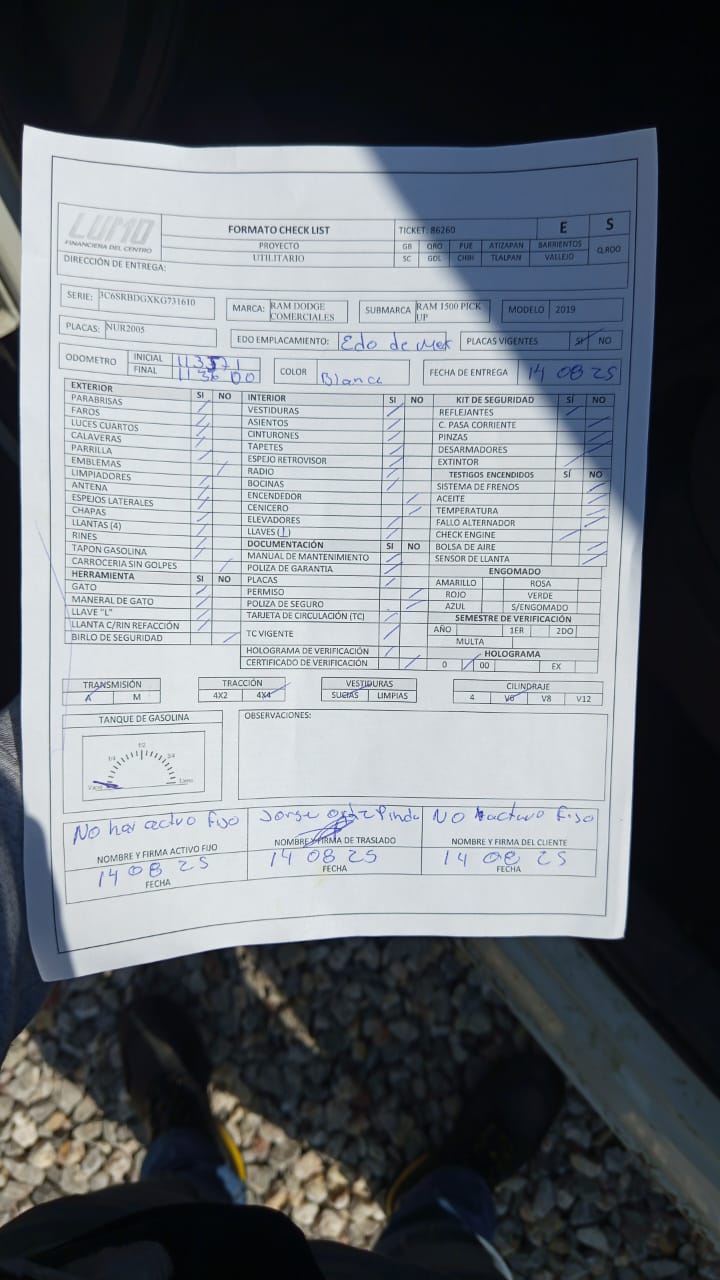 LUMO
FINANCIERA DEL CENTRO
FORMATO CHECK LIST
TICKET: 86260
E
S
PROYECTO
UTILITARIO
GB QRO PUE ATIZAPAN BARRIENTOS
SC GDL CHIH TLALPAN VALLEJO
Q.ROO
DIRECCIÓN DE ENTREGA:
SERIE: 3C6SRBDGXKG731610
MARCA: RAM DODGE COMERCIALES
SUBMARCA RAM 1500 PICK UP
MODELO 2019
PLACAS: NUR2005
EDO EMPLACAMIENTO: Edo de Mex
PLACAS VIGENTES SI NO
ODOMETRO
INICIAL 113571
FINAL 113600
COLOR Blanca
FECHA DE ENTREGA 14 08 25
EXTERIOR SI NO
PARABRISAS
FAROS
LUCES CUARTOS
CALAVERAS
PARRILLA
EMBLEMAS
LIMPIADORES
ANTENA
ESPEJOS LATERALES
CHAPAS
LLANTAS (4)
RINES
TAPON GASOLINA
CARROCERIA SIN GOLPES
HERRAMIENTA SI NO
GATO
MANERAL DE GATO
LLAVE "L"
LLANTA C/RIN REFACCIÓN
BIRLO DE SEGURIDAD
INTERIOR SI NO
VESTIDURAS
ASIENTOS
CINTURONES
TAPETES
ESPEJO RETROVISOR
RADIO
BOCINAS
ENCENDEDOR
CENICERO
ELEVADORES
LLAVES (1)
DOCUMENTACIÓN SI NO
MANUAL DE MANTENIMIENTO
POLIZA DE GARANTIA
PLACAS
PERMISO
POLIZA DE SEGURO
TARJETA DE CIRCULACIÓN (TC)
TC VIGENTE
HOLOGRAMA DE VERIFICACIÓN
CERTIFICADO DE VERIFICACIÓN
KIT DE SEGURIDAD SÍ NO
REFLEJANTES
C. PASA CORRIENTE
PINZAS
DESARMADORES
EXTINTOR
TESTIGOS ENCENDIDOS SÍ NO
SISTEMA DE FRENOS
ACEITE
TEMPERATURA
FALLO ALTERNADOR
CHECK ENGINE
BOLSA DE AIRE
SENSOR DE LLANTA
ENGOMADO
AMARILLO ROSA
ROJO VERDE
AZUL S/ENGOMADO
SEMESTRE DE VERIFICACIÓN
AÑO 1ER 2DO
MULTA
HOLOGRAMA
0 00 EX
TRANSMISIÓN
A M
TRACCIÓN
4X2 4X4
VESTIDURAS
SUCIAS LIMPIAS
CILINDRAJE
4 V6 V8 V12
TANQUE DE GASOLINA
1/4 1/2 3/4
Vacio Lleno
OBSERVACIONES:
No hay activo fijo
NOMBRE Y FIRMA ACTIVO FIJO
14 08 25
FECHA
Jorge
NOMBRE Y FIRMA DE TRASLADO
14 08 25
FECHA
NO activo fiso
NOMBRE Y FIRMA DEL CLIENTE
14 08 25
FECHA